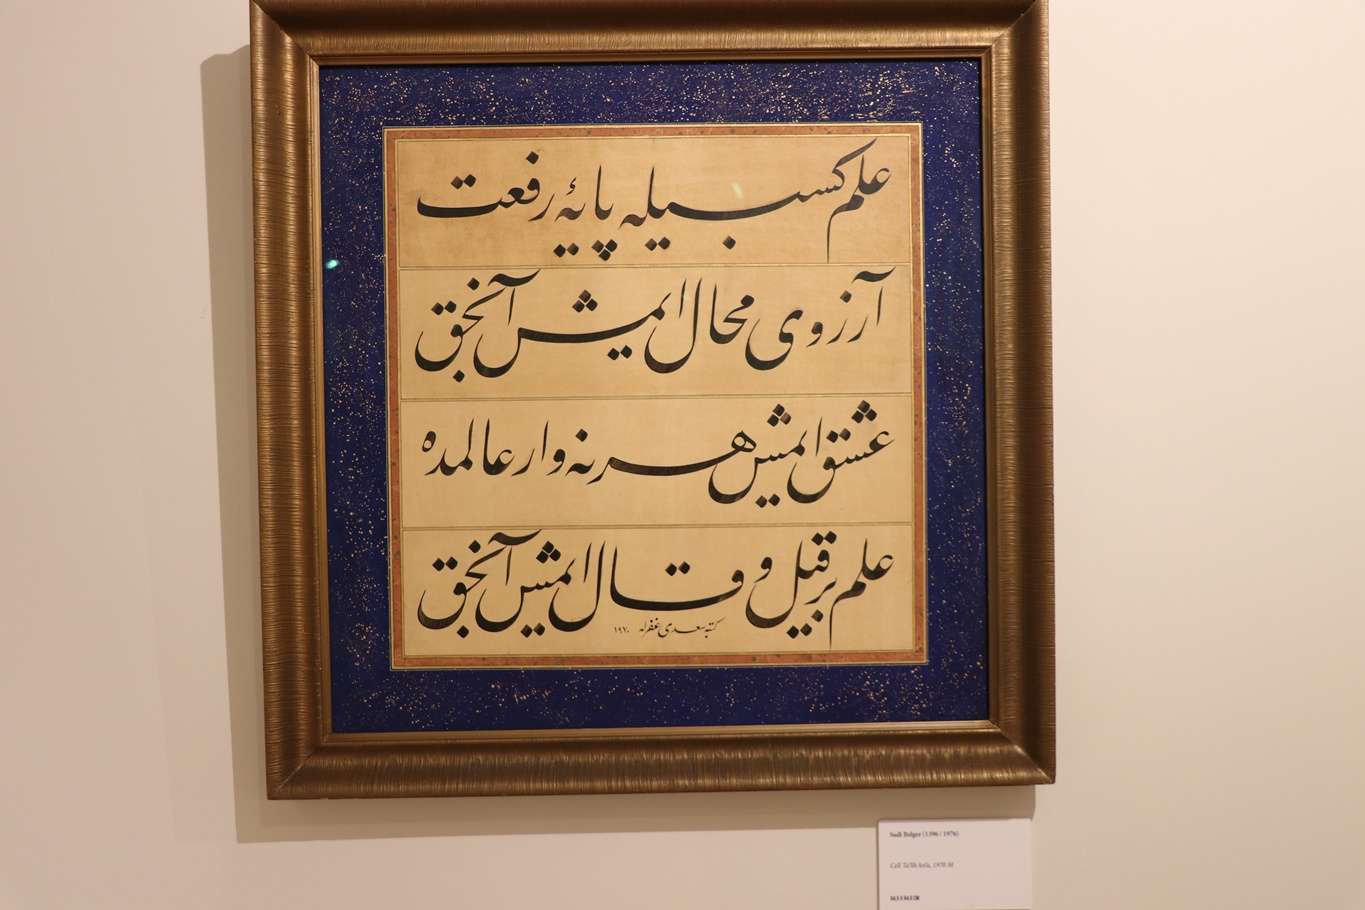 علم كسبيله پايۀ رفعت
آرزوى محال ايمش آنجق
عشق ايمش هر نه وار عالمده
علم بر قيل و قال ايمش آنجق
كتبه سعدى غفرله ١٩٧٠
Sadi Belger (1396 / 1976)
Celî Ta'lîk kıt'a, 1970 M